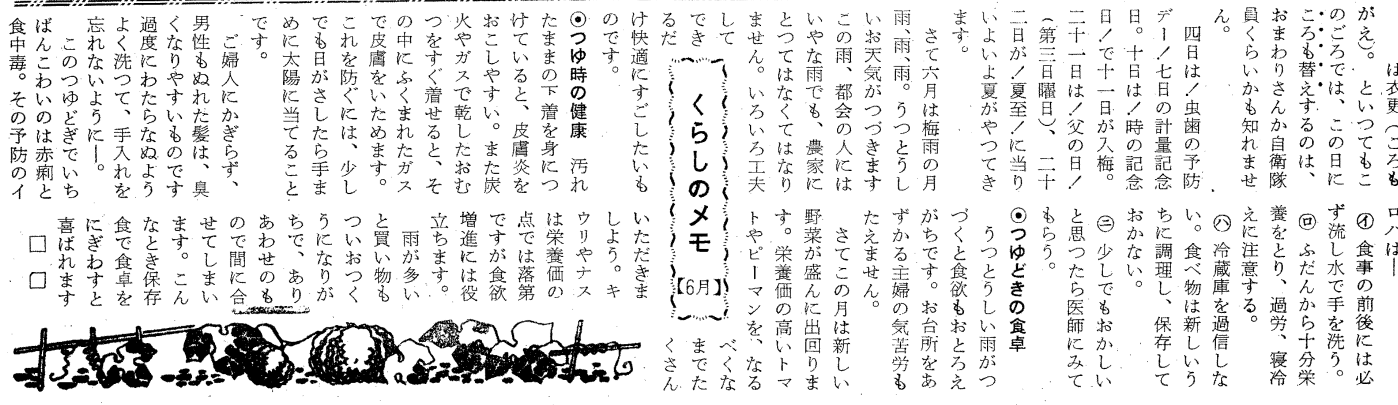 は衣更(ころも
がえ)。 といつてもこ
のごろでは、この日に
ころも替えするのは、
おまわりさんか自衛隊
員くらいかも知れませ
ん。
四日は〃虫歯の予防
デー〃七日の計量記念
日。十日は〃時の記念
日〃で十一日が入梅。
二十一日は〃父の日〃
(第三日曜日)、二十
二日が〃夏至〃に当り
いよいよ夏がやつてき
ます。
さて六月は梅雨の月
雨、雨、雨。うつとうし
いお天気がつづきます
この雨、都会の人には
いやな雨でも、農家に
とつてはなくてはなり
ません。いろいろ工夫
して
でき
るだ
け快適にすごしたいも
のです。
くらしのメモ
【6月】
◉つゆ時の健康 汚れ
たままの下着を身につ
けていると、皮膚炎を
おこしやすい。また炭
火やガスで乾したおむ
つをすぐ着せると、そ
の中にふくまれたガス
で皮膚をいためます。
これを防ぐには、少し
でも日がさしたら手ま
めに太陽に当てること
です。
ご婦人にかぎらず、
男性もぬれた髪は、臭
くなりやすいものです
過度にわたらなぬよう
よく洗つて、手入れを
忘れないようにー。
このつゆどきでいち
ばんこわいのは赤痢と
食中毒。その予防のイ
ロハはー
㋑ 食事の前後には必
ず流し水で手を洗う。
㋺ ふだんから十分栄
養をとり、過労、寝冷
えに注意する。
㋩ 冷蔵庫を過信しな
い。食べ物は新しいう
ちに調理し、保存して
おかない。
㋥ 少しでもおかしい
と思つたら医師にみて
もらう。
◉つゆどきの食卓
うつとうしい雨がつ
づくと食欲もおとろえ
がちです。お台所をあ
ずかる主婦の気苦労も
たえません。
さてこの月は新しい
野菜が盛んに出回りま
す。栄養価の高いトマ
トやピーマンを、なる
べくな
までた
くさん
いただきま
しよう。キ
ウリやナス
は栄養価の
点では落第
ですが食欲
増進には役
立ちます。
雨が多い
と買い物も
ついおつく
うになりが
ちで、あり
あわせのも
ので間に合
せてしまい
ます。こん
なとき保存
食で食卓を
にぎわすと
喜ばれます
□ □